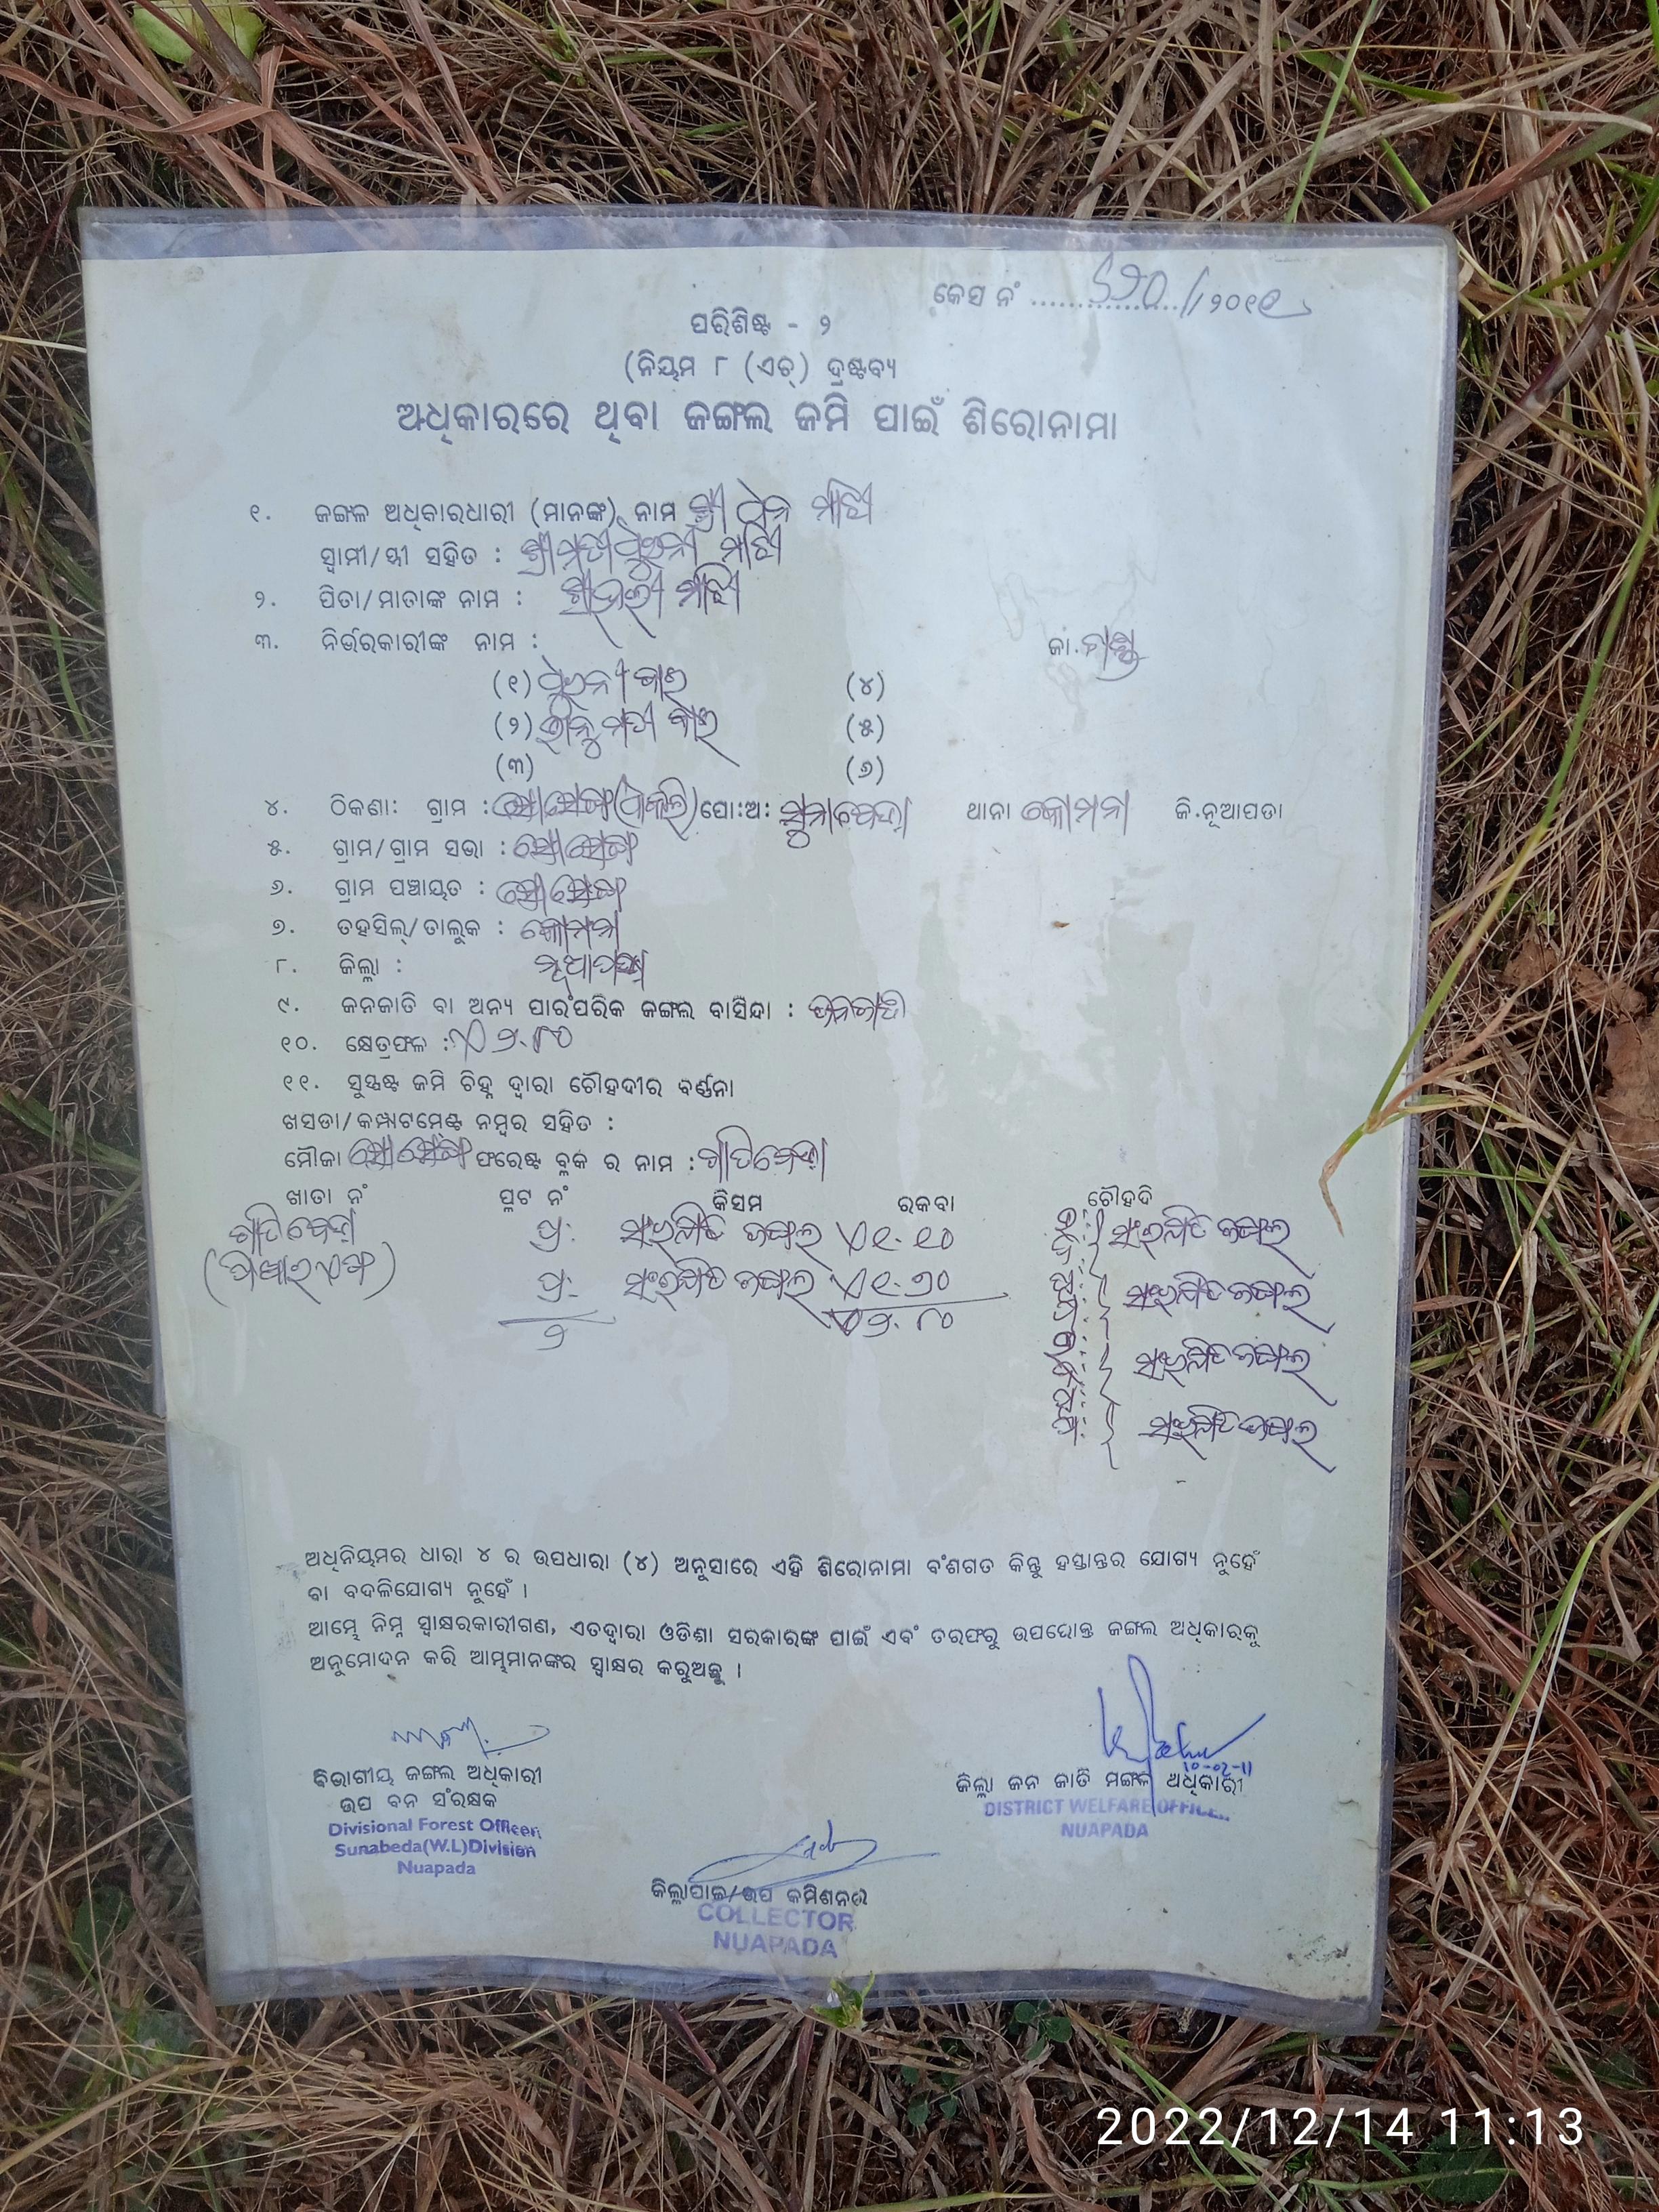 କେସ ନଂ ................//୨୦୧୧
ପରିଶିଷ୍ଟ - ୨
(ନିୟମ ୮ (ଏଚ୍) ଦ୍ରଷ୍ଟବ୍ୟ
ଅଧିକାରରେ ଥିବା ଜଙ୍ଗଲ ଜମି ପାଇଁ ଶିରୋନାମା
୧. ଜଙ୍ଗଳ ଅଧିକାରଧାରୀ (ମାନଙ୍କ) ନାମ ଶ୍ରୀ ଧନ ମାଝି
ସ୍ବାମୀ/ସ୍ତ୍ରୀ ସହିତ : ଶ୍ରୀମତୀ ମାଝି
୨. ପିତା/ମାତାଙ୍କ ନାମ : ମାଝି
୩. ନିର୍ଭରକାରୀଙ୍କ ନାମ : ଜା.
(୧) ବାଇ (୪)
(୨) ଭାନୁମତୀ ବାଇ (୫)
(୩) (୬)
୪. ଠିକଣା: ଗ୍ରାମ : ପୋ:ଅ: ସୁନାବେଡ଼ା ଥାନା କୋମନା ଜି.ନୂଆପଡା
୫. ଗ୍ରାମ/ଗ୍ରାମ ସଭା : ସୋସେଙ୍ଗ
୬. ଗ୍ରାମ ପଞ୍ଚାୟତ : ସୋସେଙ୍ଗ
୭. ତହସିଲ୍/ତାଲୁକ : କୋମନା
୮. ଜିଲ୍ଲା : ନୂଆପଡ଼ା
୯. ଜନଜାତି ବା ଅନ୍ୟ ପାରଂପରିକ ଜଙ୍ଗଲ ବାସିନ୍ଦା : ଜନଜାତି
୧୦. କ୍ଷେତ୍ରଫଳ : ଏ ୨.୮୦
୧୧. ସୁସ୍ପଷ୍ଟ ଜମି ଚିହ୍ନ ଦ୍ୱାରା ଚୌହଦୀର ବର୍ଣ୍ଣନା
ଖସଡା/କମ୍ପାଟମେଣ୍ଟ ନମ୍ବର ସହିତ :
ମୌଜା ସୋସେଙ୍ଗ ଫରେଷ୍ଟ ବ୍ଲକ ର ନାମ : ପାଟିବେଡ଼ା
ଖାତା ନଂ ପ୍ଲଟ ନଂ କିସମ ରକବା ଚୌହଦି
ପାଟିବେଡ଼ା ପ୍ର: ସଂରକ୍ଷିତ ଜଙ୍ଗଲ ଏ ୧.୧୦ ସଂରକ୍ଷିତ ଜଙ୍ଗଲ
ପ୍ର: ସଂରକ୍ଷିତ ଜଙ୍ଗଲ ଏ ୧.୭୦ ସଂରକ୍ଷିତ ଜଙ୍ଗଲ
୨ ଏ ୨.୮୦
ସଂରକ୍ଷିତ ଜଙ୍ଗଲ
ସଂରକ୍ଷିତ ଜଙ୍ଗଲ
ଅଧିନିୟମର ଧାରା ୪ ର ଉପଧାରା (୪) ଅନୁସାରେ ଏହି ଶିରୋନାମା ବଂଶଗତ କିନ୍ତୁ ହସ୍ତାନ୍ତର ଯୋଗ୍ୟ ନୁହେଁ
ବା ବଦଳିଯୋଗ୍ୟ ନୁହେଁ ।
ଆମ୍ଭେ ନିମ୍ନ ସ୍ୱାକ୍ଷରକାରୀଗଣ, ଏତଦ୍ୱାରା ଓଡିଶା ସରକାରଙ୍କ ପାଇଁ ଏବଂ ତରଫରୁ ଉପରୋକ୍ତ ଜଙ୍ଗଲ ଅଧିକାରକୁ
ଅନୁମୋଦନ କରି ଆମ୍ଭମାନଙ୍କର ସ୍ୱାକ୍ଷର କରୁଅଛୁ ।
10-02-11
ବିଭାଗୀୟ ଜଙ୍ଗଲ ଅଧିକାରୀ
ଉପ ବନ ସଂରକ୍ଷକ
Divisional Forest Officer
Sunabeda(W.L)Division
Nuapada
ଜିଲ୍ଲା ଜନ ଜାତି ମଙ୍ଗଳ ଅଧିକାରୀ
DISTRICT WELFARE OFFICER
NUAPADA
ଜିଲ୍ଲାପାଳ/ଉପ କମିଶନର
COLLECTOR
NUAPADA
2022/12/14 11:13